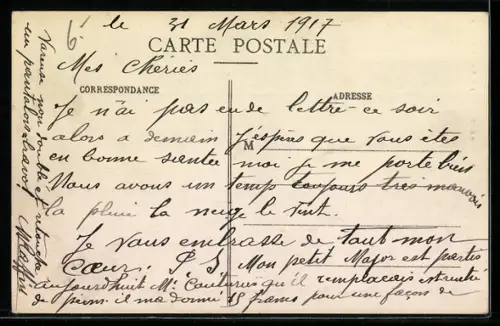 6
le 31 Mars 1917
CARTE POSTALE
Mes Chéries
CORRESPONDANCE
ADRESSE
Je n'ai pas eu de lettre ce soir
alors a demain J'espère que vous êtes
M
en bonne santée moi je me porte bien
Nous avons un temps toujours tres mauvais
la pluie la neige le vent.
Je vous embrasse de tout mon
Cœur. P S Mon petit Major est partis
aujourd'huit Mr. qu'il remplacais
de il ma donné 15 francs pour une façon de
Vareuse non doublé et retouche
un pantalon